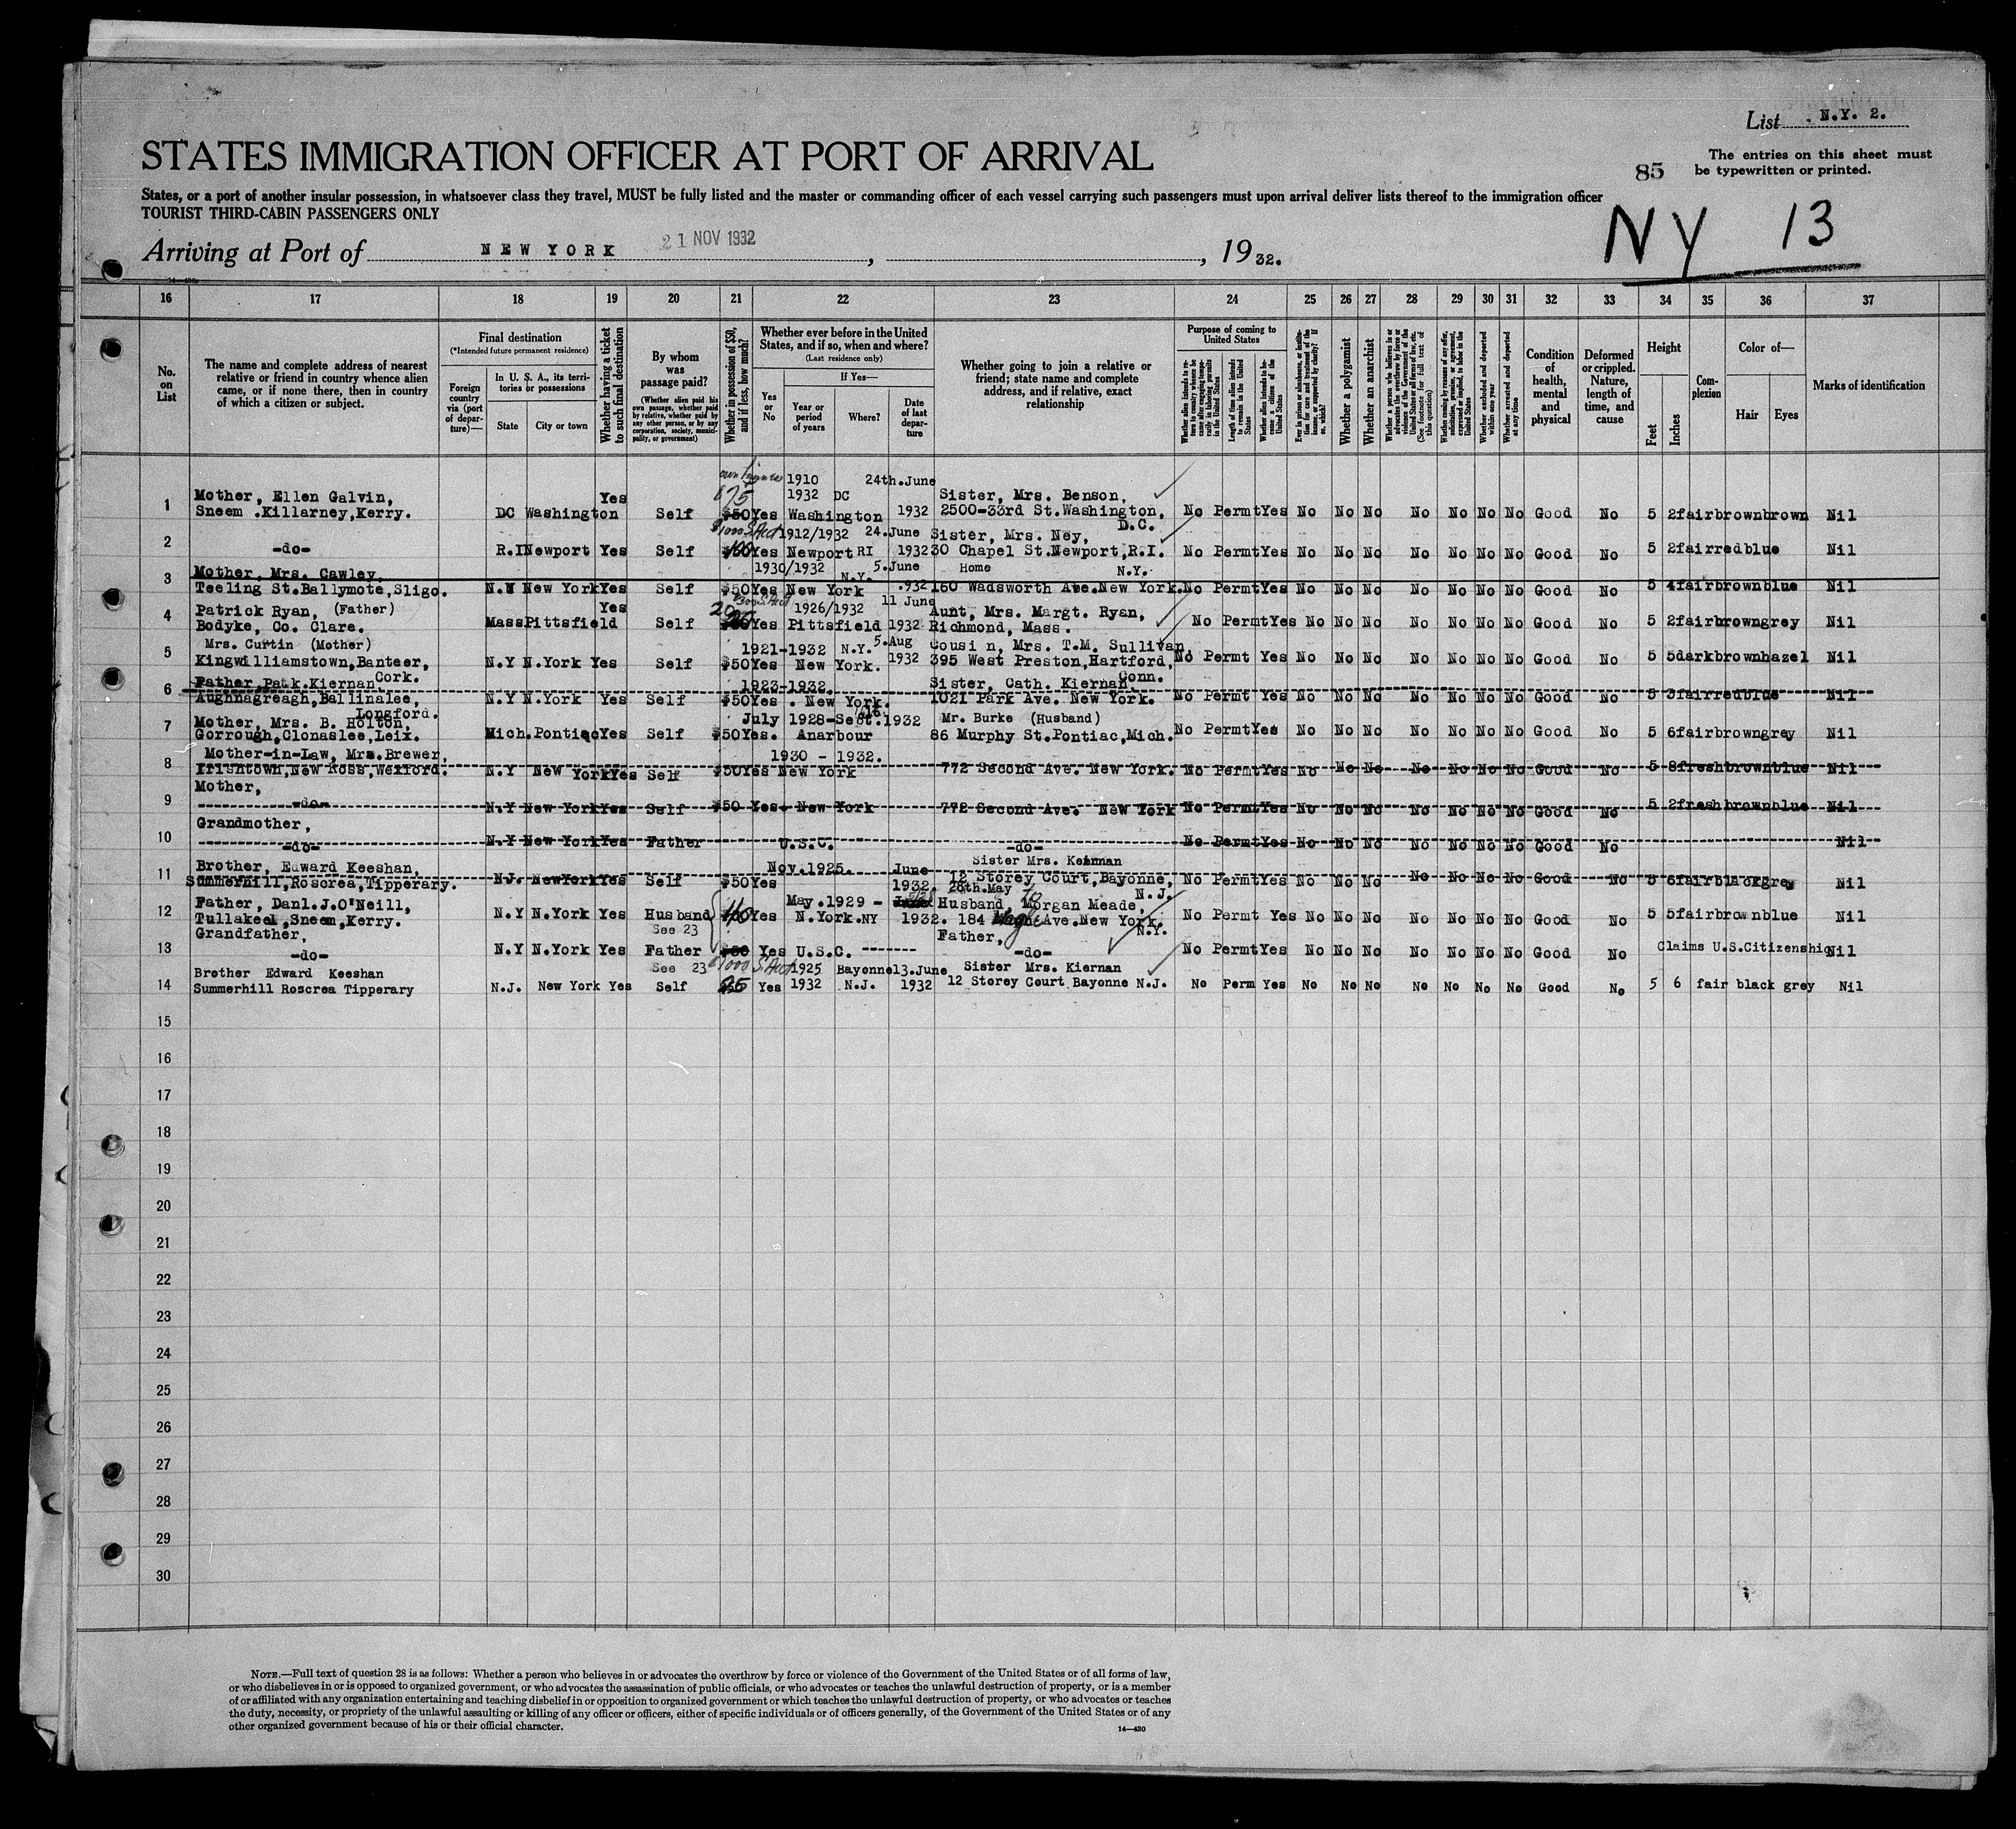 List N.Y. 2.
STATES IMMIGRATION OFFICER AT PORT OF ARRIVAL
85
The entries on this sheet must
be typewritten or printed.
States, or a port of another insular possession, in whatsoever class they travel, MUST be fully listed and the master or commanding officer of each vessel carrying such passengers must upon arrival deliver lists thereof to the immigration officer
TOURIST THIRD-CABIN PASSENGERS ONLY
NY 13
Arriving at Port of NEW YORK 21 NOV 1932 , , 19 32.
16 17 18 19 20 21 22 23 24 25 26 27 28 29 30 31 32 33 34 35 36 37
No. on List
The name and complete address of nearest relative or friend in country whence alien came, or if none there, then in country of which a citizen or subject.
Final destination
(*Intended future permanent residence)
Foreign country via (port of departure)—
In U. S. A., its territories or possessions
State
City or town
Whether having a ticket to such final destination
By whom was passage paid?
(Whether alien paid his own passage, whether paid by relative, whether paid by any other person, or by any corporation, society, municipality, or government)
Whether in possession of $50, and if less, how much?
Whether ever before in the United States, and if so, when and where?
(Last residence only)
If Yes—
Yes or No
Year or period of years
Where?
Date of last departure
Whether going to join a relative or friend; state name and complete address, and if relative, exact relationship
Purpose of coming to United States
Length of time alien intends to remain in the United States
Whether alien intends to become a citizen of the United States
Whether a polygamist
Whether an anarchist
Whether excluded and deported within one year
Whether arrested and deported at any time
Condition of health, mental and physical
Deformed or crippled. Nature, length of time, and cause
Height
Feet
Inches
Complexion
Color of—
Hair
Eyes
Marks of identification
1 Mother, Ellen Galvin, Yes 1910 1932 DC 24th.June Sister, Mrs. Benson,
Sneem .Killarney,Kerry. DC Washington Self $50 Yes Washington 1932 2500-33rd St.Washington, D.C. No Permt Yes No No No No No No No Good No 5 2 fair brown brown Nil
2 -do- R.I Newport Yes Self Yes 1912/1932 Newport RI 24.June 1932 Sister, Mrs. Ney, 30 Chapel St.Newport,R.I. No Permt Yes No No No No No No No Good No 5 2 fair red blue Nil
3 Mother, Mrs. Cawley, 1930/1932 N.Y. 5.June Home N.Y.
Teeling St.Ballymote,Sligo. New York Yes Self $50 Yes New York .932 160 Wadsworth Ave.New York. No Permt Yes No No No No No No No Good No 5 4 fair brown blue Nil
4 Patrick Ryan, (Father) Yes 20 1926/1932 11 June Aunt, Mrs. Margt. Ryan,
Bodyke, Co. Clare. Mass Pittsfield Self Yes Pittsfield 1932 Richmond, Mass. No Permt Yes No No No No No No No Good No 5 2 fair brown grey Nil
5 Mrs. Curtin (Mother) 1921-1932 N.Y. 5.Aug Cousin, Mrs. T.M. Sullivan,
Kingwilliamstown,Banteer, Cork. N.Y N.York Yes Self $50 Yes New York. 1932 395 West Preston,Hartford, Conn. No Permt Yes No No No No No No No Good No 5 5 dark brown hazel Nil
6 Father Patk.Kiernan 1923-1932. Sister, Cath. Kiernan
Aughnagreagh,Ballinalee, Longford. N.Y N.York Yes Self $50 Yes . New York. 1021 Park Ave. New York. No Permt Yes No No No No No No No Good No 5 3 fair red blue Nil
7 Mother, Mrs. B. Holton, July 1928-Sept.1932 Mr. Burke (Husband)
Gorrough,Clonaslee,Leix. Mich. Pontiac Yes Self $50 Yes. Anarbour 86 Murphy St.Pontiac,Mich. No Permt Yes No No No No No No No Good No 5 6 fair brown grey Nil
8 Mother-in-Law, Mrs.Brewer, 1930 - 1932.
Irishtown,New Ross,Wexford. N.Y New York Yes Self $50 Yes New York 772 Second Ave. New York. No Permt Yes No No No No No No No Good No 5 8 fresh brown blue Nil
9 Mother,
-do- N.Y New York Yes Self $50 Yes. New York 772 Second Ave. New York No Permt Yes No No No No No No No Good No 5 2 fresh brown blue Nil
10 Grandmother,
-do- N.Y New York Yes Father U.S.C. -do- No Permt Yes No No No No No No No Good No Nil
11 Brother, Edward Keeshan, Nov.1925. June Sister Mrs.
Summerhill,Roscrea,Tipperary. N.J. New York Yes Self $50 Yes 1932. 12 Storey Court,Bayonne, N.J. No Permt Yes No No No No No No No Good No 5 6 fair black grey Nil
12 Father, Danl.J.O'Neill, May.1929 - 28th.May Husband, Morgan Meade,
Tullakeel,Sneem,Kerry. N.Y N.York Yes Husband See 23 Yes N.York.NY 1932. 184 Ave.New York, N.Y. No Permt Yes No No No No No No No Good No 5 5 fair brown blue Nil
13 Grandfather, Father,
-do- N.Y N.York Yes Father See 23 $50 Yes U.S.C. ------- -do- No Permt Yes No No No No No No No Good No Claims U.S.Citizenship Nil
14 Brother Edward Keeshan 1925 Bayonne 13.June Sister Mrs Kiernan
Summerhill Roscrea Tipperary N.J. New York Yes Self Yes 1932 N.J. 1932 12 Storey Court Bayonne N.J. No Perm Yes No No No No No No No Good No 5 6 fair black grey Nil
15
16
17
18
19
20
21
22
23
24
25
26
27
28
29
30
NOTE.—Full text of question 28 is as follows: Whether a person who believes in or advocates the overthrow by force or violence of the Government of the United States or of all forms of law,
or who disbelieves in or is opposed to organized government, or who advocates the assassination of public officials, or who advocates or teaches the unlawful destruction of property, or is a member
of or affiliated with any organization entertaining and teaching disbelief in or opposition to organized government or which teaches the unlawful destruction of property, or who advocates or teaches
the duty, necessity, or propriety of the unlawful assaulting or killing of any officer or officers, either of specific individuals or of officers generally, of the Government of the United States or of any
other organized government because of his or their official character.
14—430